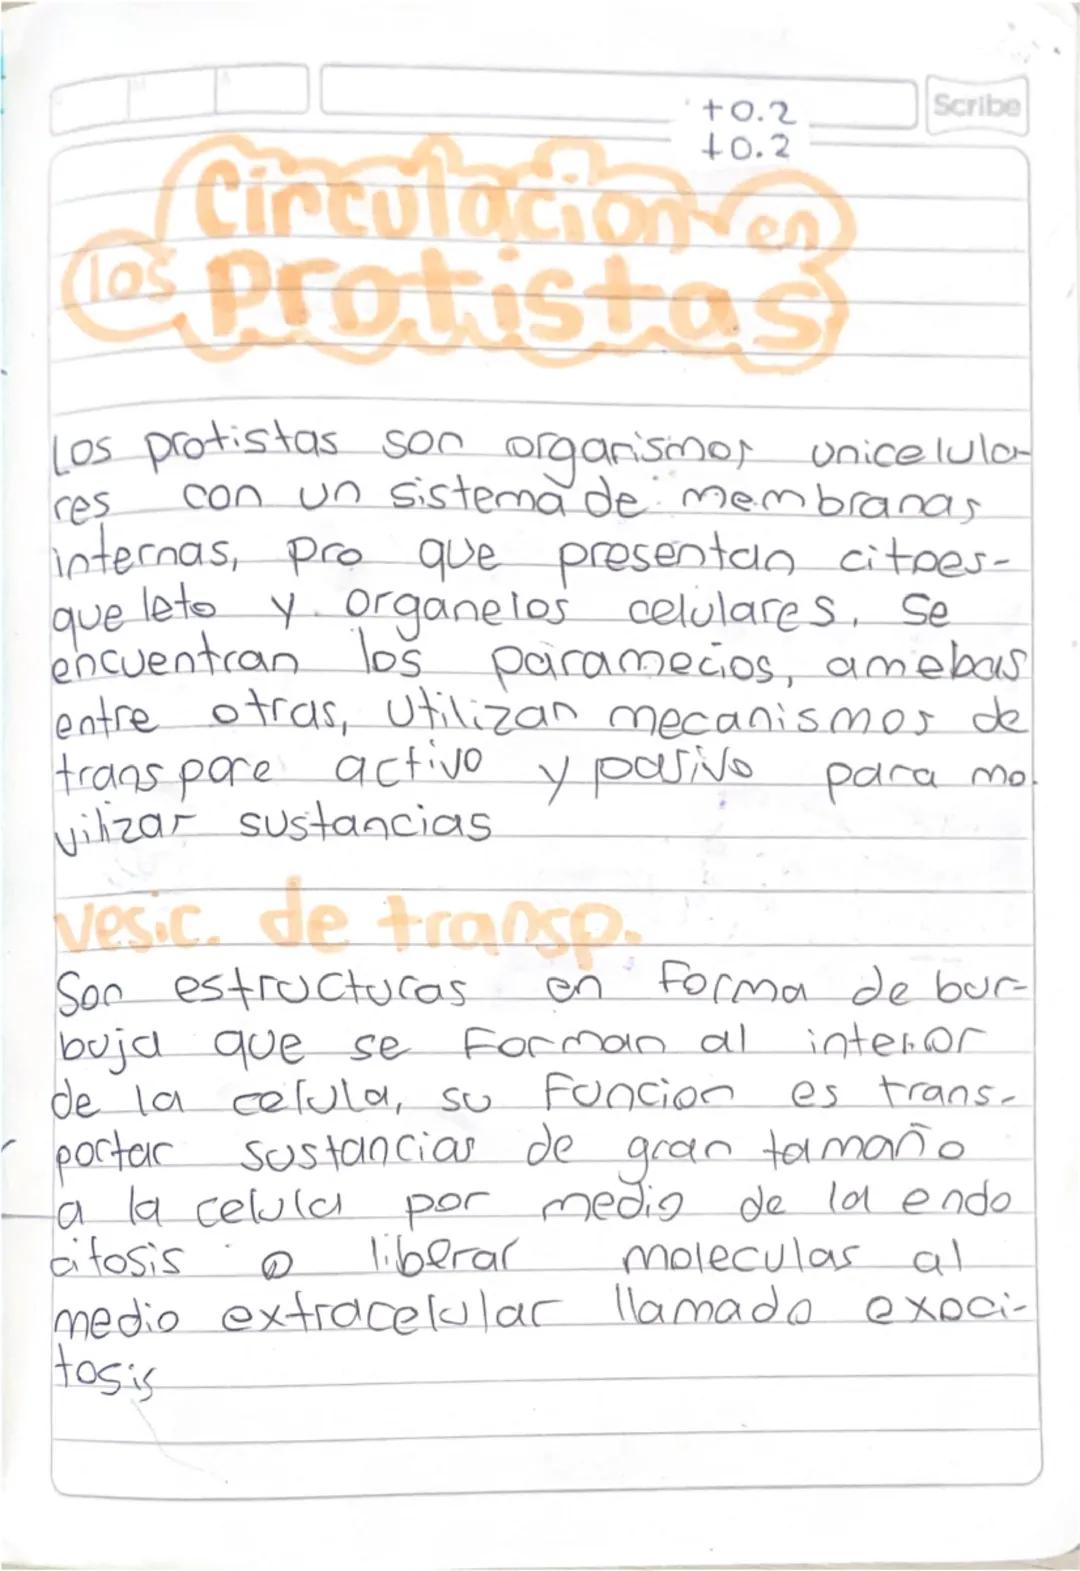 Scribe
+0.2
+0.2
Circulacion en
los Protistas
Los protistas son organismos unicelula-
res con un sistema de membranas
internas, pro que presentan citoes-
queleto y organelos celulares, se
encuentran los paramecios, amebas
entre otras, utilizan mecanismos de
transpore activo y pasivo para mo-
vilizar sustancias
vesic. de transp.
Son estructuras en forma de bur-
buja que se forman al interior
de la celula, su funcion es trans-
portar sustancias de gran tamaño
a la celula por medio de la endo
citosis o liberar moleculas al
medio extracelular llamado exoci-
tosis